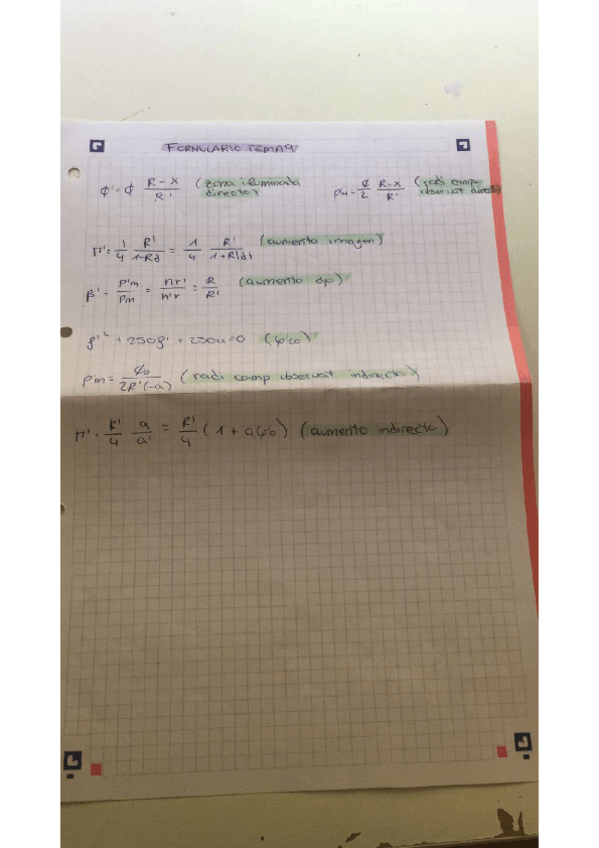 FORMULARIO TEMA 9
ϕ' = ϕ (R-X)/R' (zona iluminada directo)
ρ'm = ϕ/2 (R-X)/R' (radi camp observat directo)
Γ' = 1/4 R'/(1-Rd) = 1/4 R'/(1+R|d|) (aumento imagen)
β' = ρ'm/ρm = nr'/n'r = R/R' (aumento ojo)
f'² + 250f' + 250a=0 (φco)
ρ'm = ϕb/2R'(-a) (radi camp observat indirecto)
Γ' = R'/4 a/a' = R'/4 (1 + aφb) (aumento indirecto)